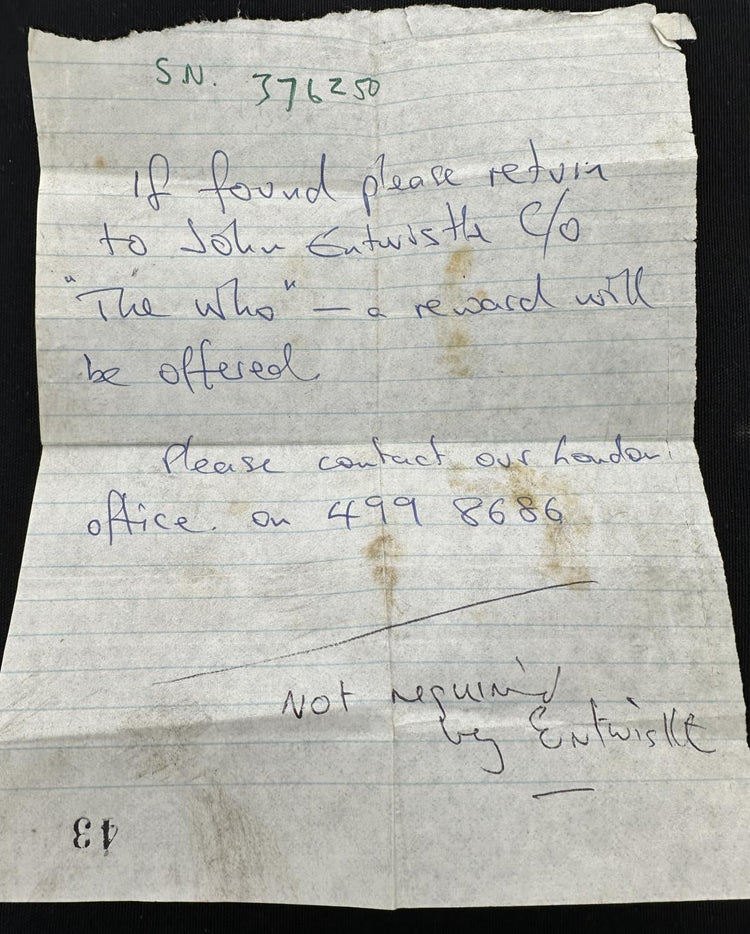 S.N. 376250
If found please return
to John Entwistle C/o
"The Who" — a reward will
be offered
Please contact our London
office. on 499 8686
Not requir'd
by Entwistle
43